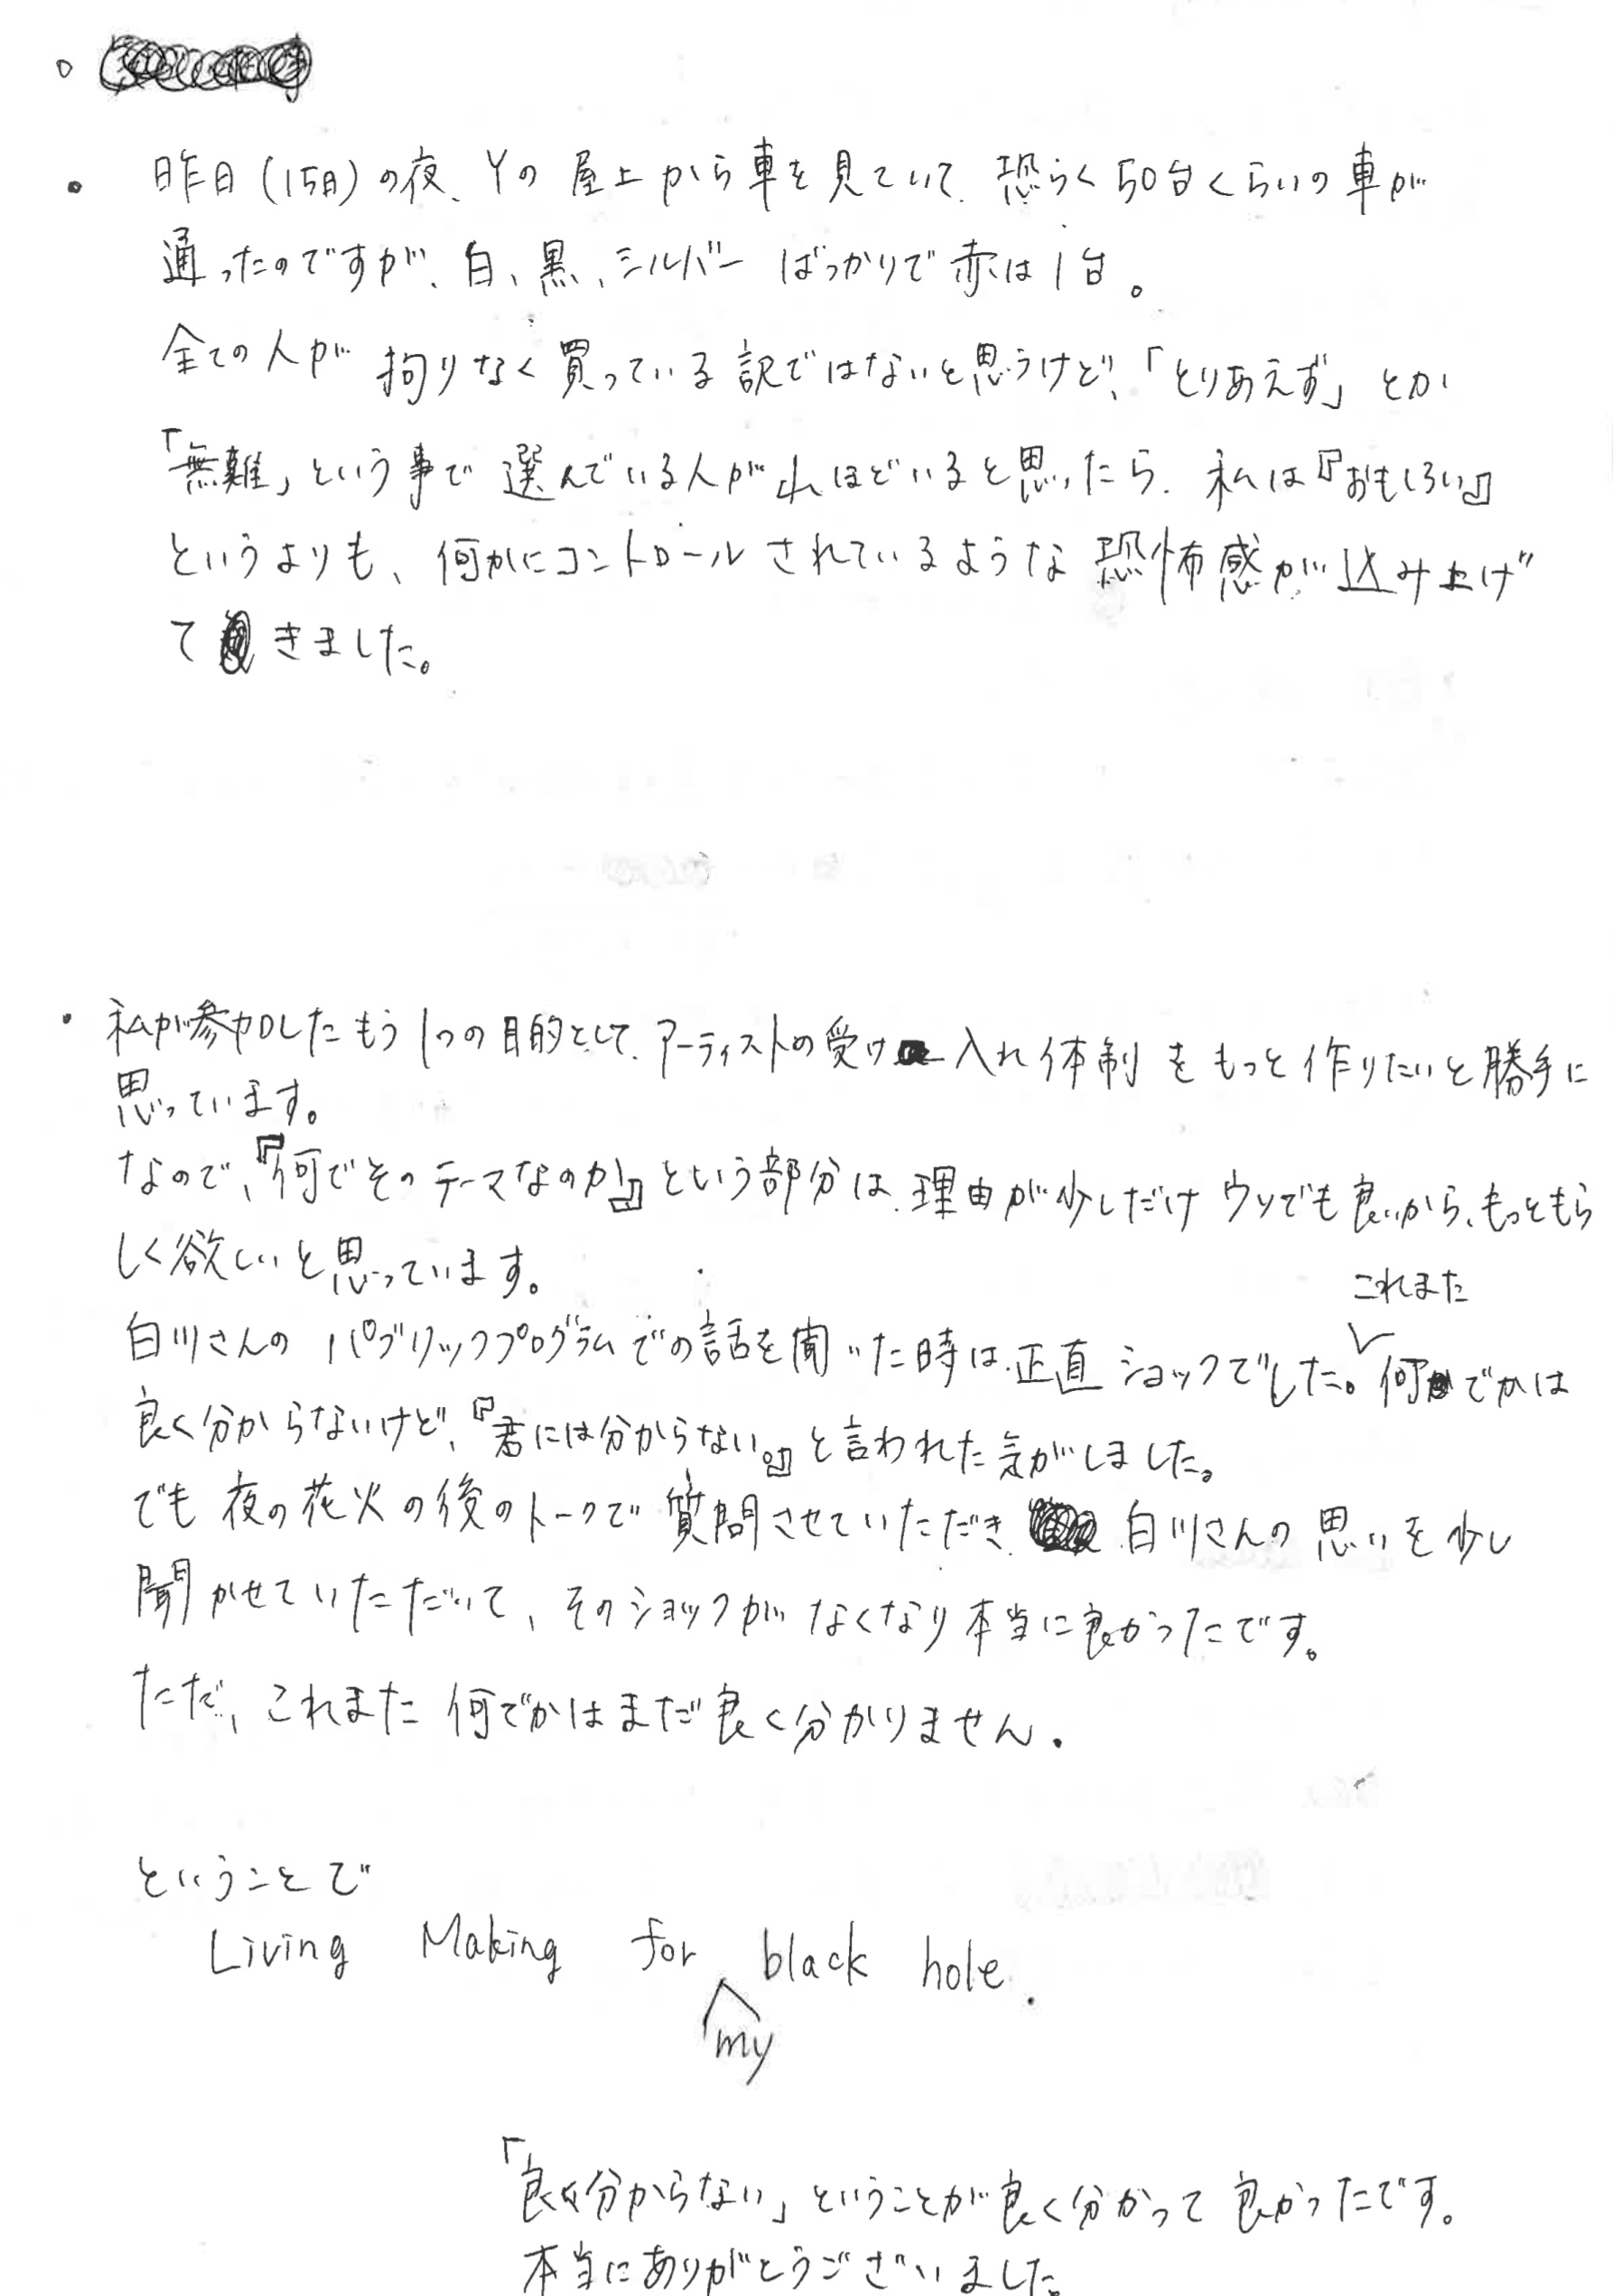 昨日(15日)の夜、Yの屋上から車を見ていて、恐らく50台くらいの車が
通ったのですが、白、黒、シルバーばっかりで赤は1台。
全ての人が拘りなく買っている訳ではないと思うけど、「とりあえず」とか
「無難」という事で選んでいる人がこれほどいると思ったら、私は『おもしろい』
というよりも、何かにコントロールされているような恐怖感が込み上げ
てきました。
・私が参加したもう1つの目的として、アーティストの受け入れ体制をもっと作りたいと勝手に
思っています。
なので、『何でそのテーマなのか』という部分は、理由が少しだけウソでも良いから、もっともら
しく欲しいと思っています。
これまた
白川さんのパブリックプログラムでの話を聞いた時は、正直ショックでした。何でかは
良く分からないけど、『君には分からない。』と言われた気がしました。
でも夜の花火の後のトークで質問させていただき、白川さんの思いを少し
聞かせていただいて、そのショックがなくなり本当に良かったです。
ただ、これまた何でかはまだ良く分かりません.
ということで
Living Making for black hole.
my
「良く分からない」ということが良く分かって良かったです。
本当にありがとうございました。